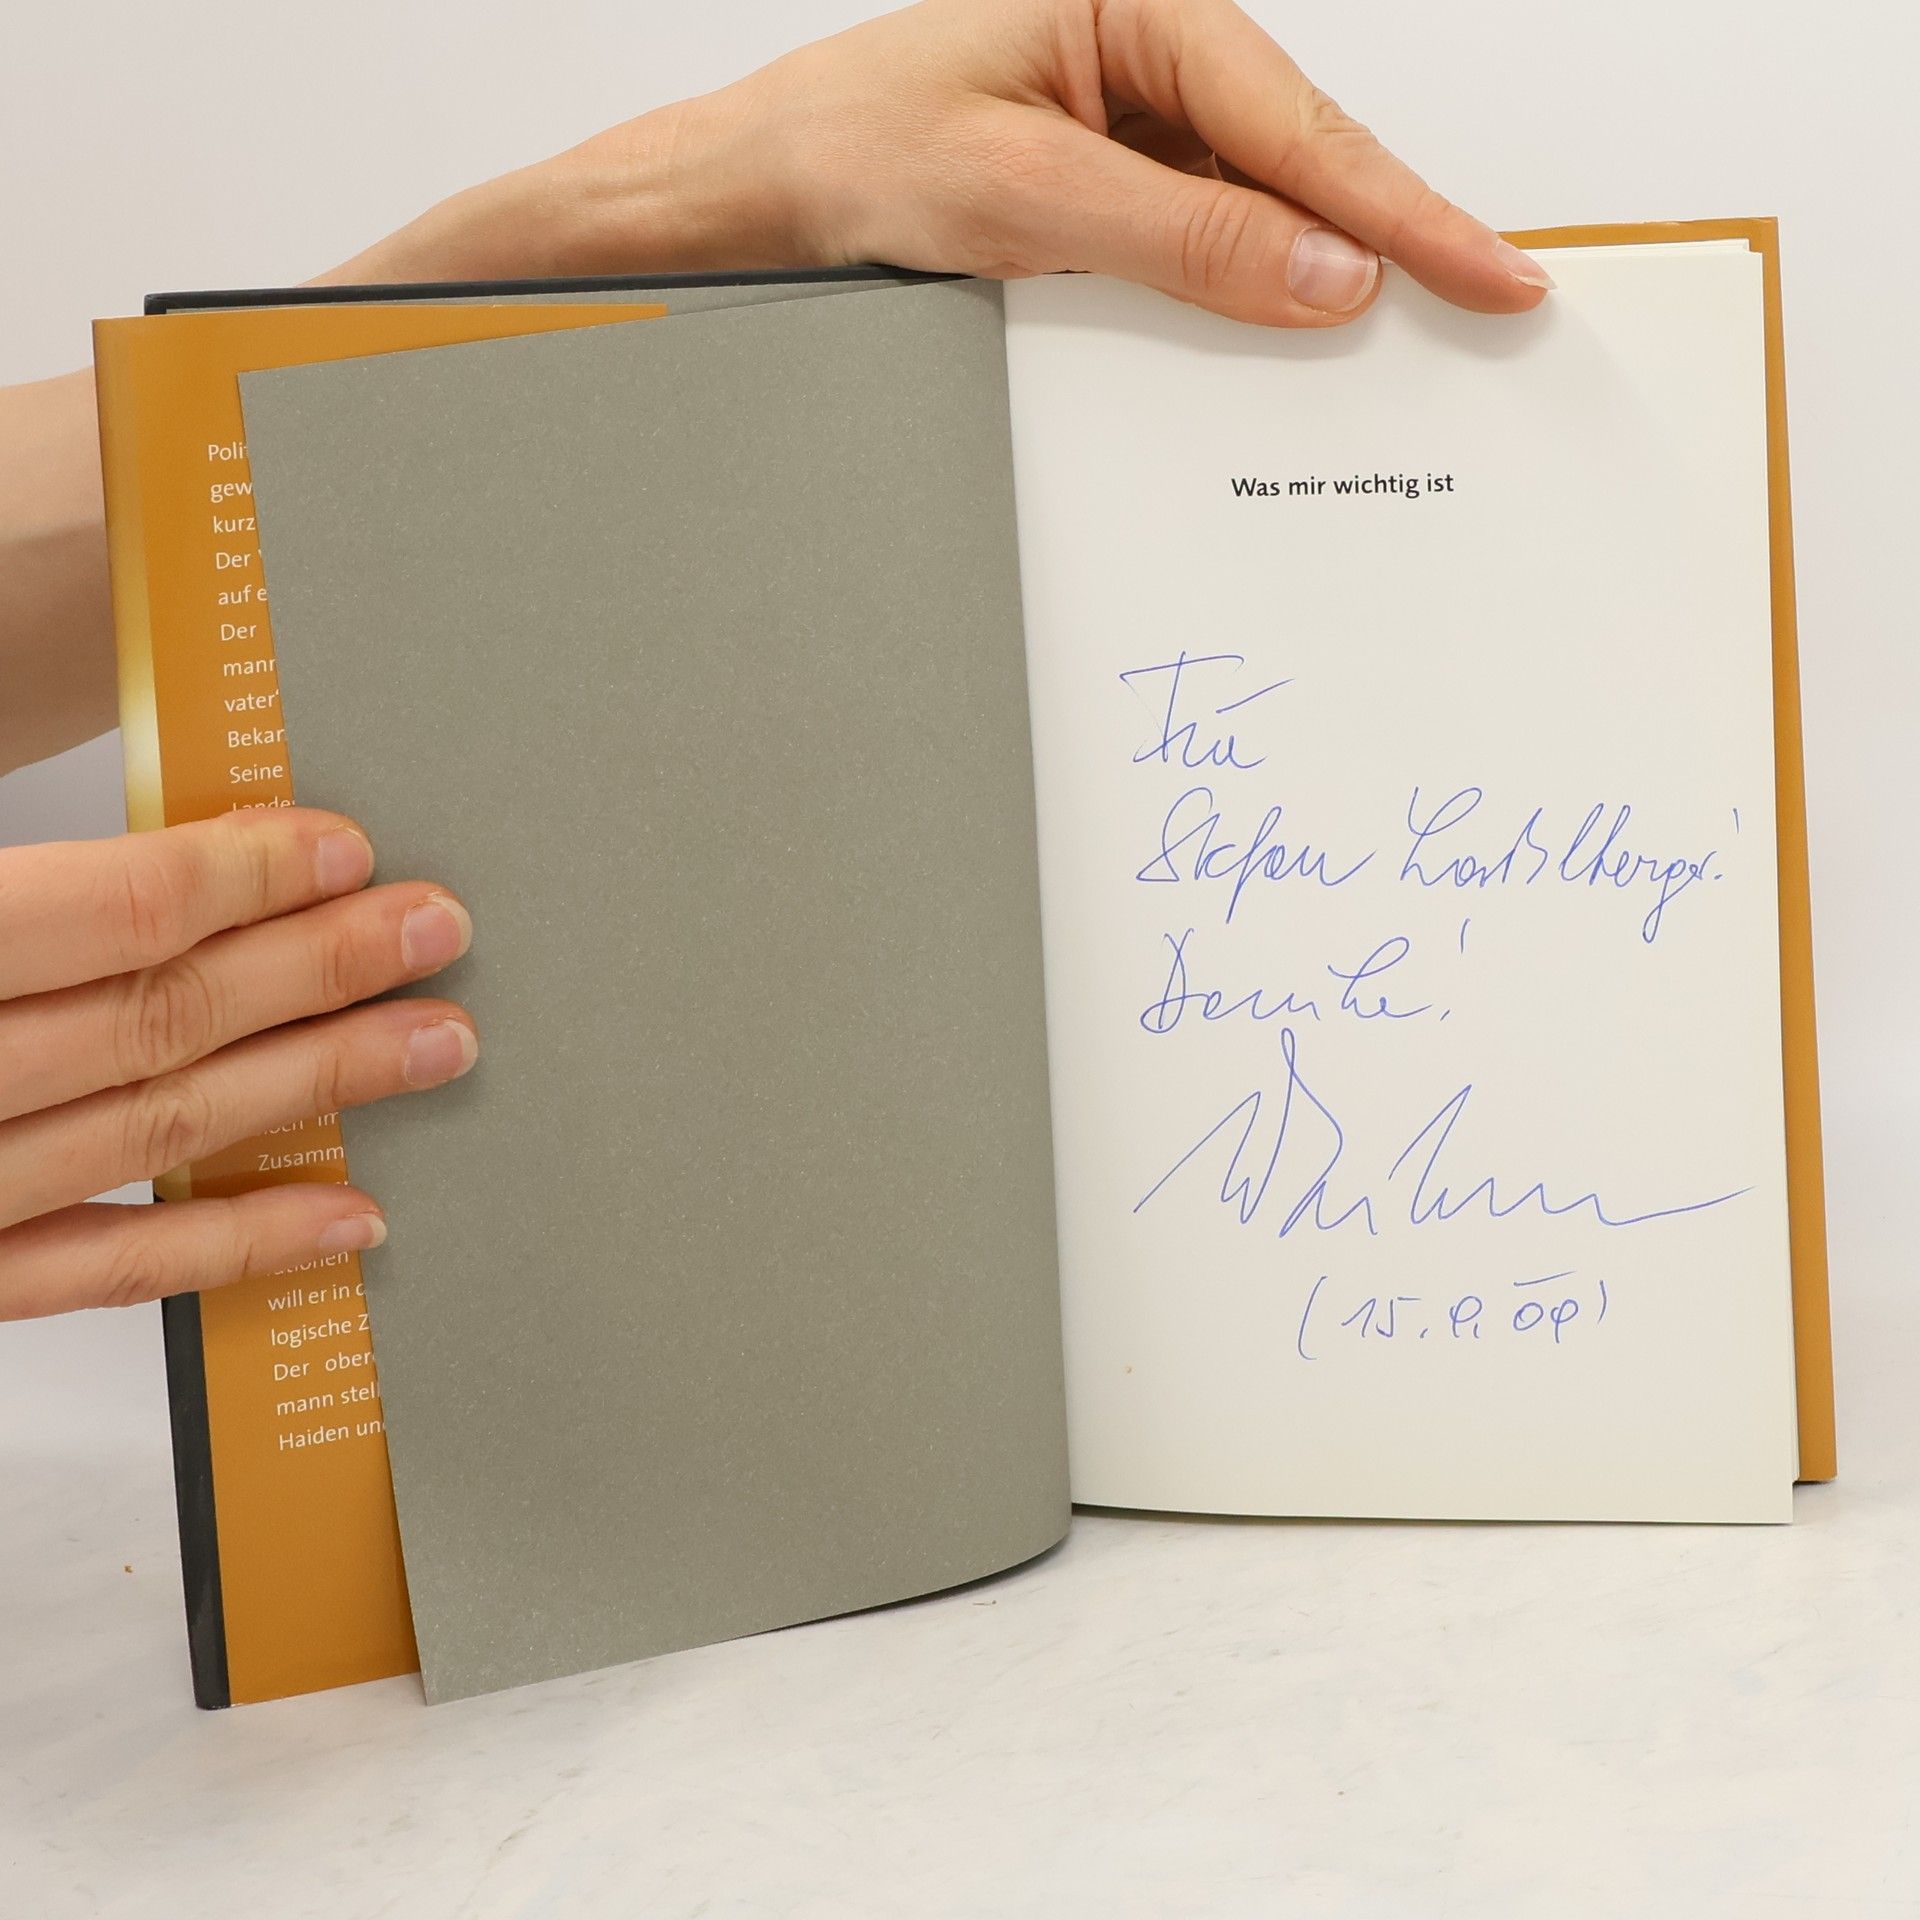 Poli
gew
kurz
Der
auf e
Der
mann
vater'
Bekan
Seine
Lande
noch im
Zusamm
rationen
will er in d
logische Z
Der ober
mann stell
Haiden und
Was mir wichtig ist
Für
Stefan
Danke!
(15. 9. 09)